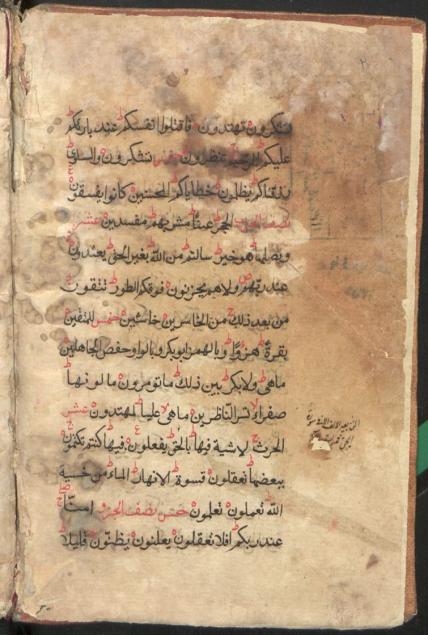 تشكرون تهتدون فاقتلوا انفسكم عند بارئكم
عليكم الرحيم تنظرون خمس تشكرون والسلوى
رزقناكم يظلمون خطاياكم المحسنين كانوا يفسقون
نصف الحزب الحجر عينا مشربهم مفسدين عشر
وبصلها هو خير سالتم من الله بغير الحق يعتدون
عند ربهم ولاهم يحزنون فوقكم الطور تتقون
من بعد ذلك من الخاسرين خاسئين خمس للمتقين
بقرة هزوا الجاهلين
ماهى ولا بكر بين ذلك ما تومرون ما لونها
صفراء تسر الناظرين ماهى علينا لمهتدون عشر
الحرث لاشية فيها بالحق يفعلون فيها كنتم تكتمون
ببعضها تعقلون قسوة الانهار الماء من خشية
الله تعملون تعلمون خمس نصف الحزب امنا
عند ربكم افلا تعقلون يعلنون يظنون قليلا